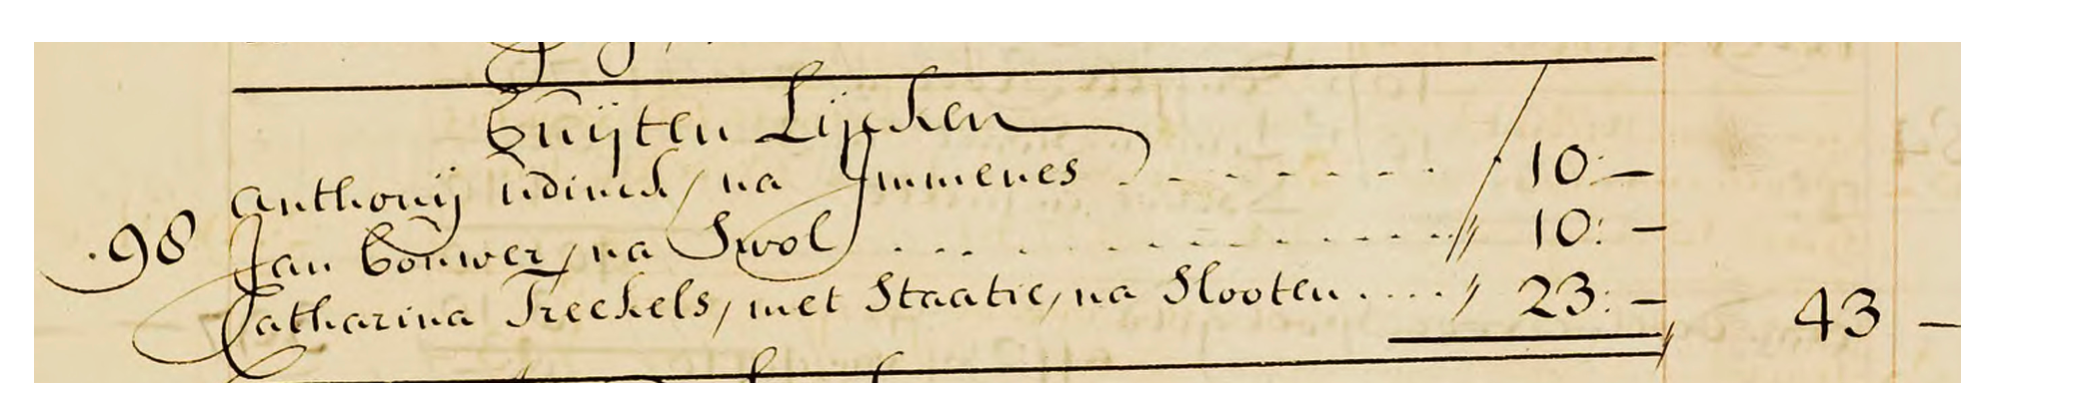 Buijten Lijcken
Anthonij / na Immenes . . . . . . . . 10:—
.98 Jan Bouwer, na Swol . . . . . . . . . . . . . . . // 10:—
Catharina Treekels, met Staatie, na Slooten . . . . // 23:— 43 —